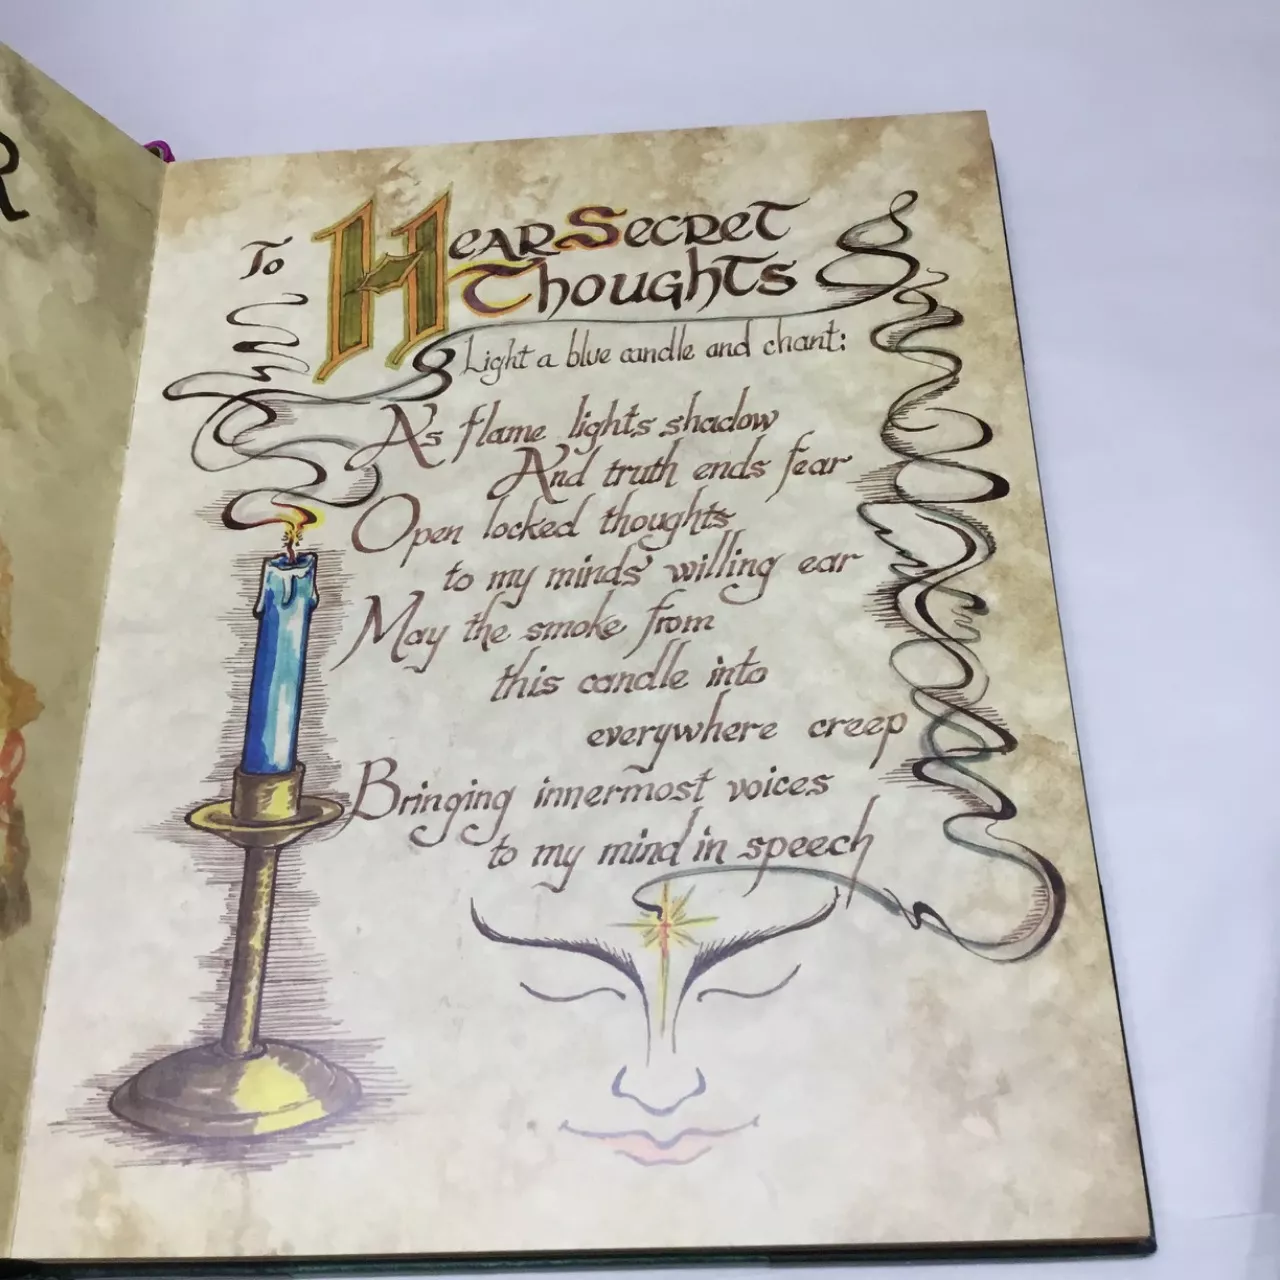 R
To Hear Secret
Thoughts
Light a blue candle and chant:
As flame lights shadow
And truth ends fear
Open locked thoughts
to my minds' willing ear
May the smoke from
this candle into
everywhere creep
Bringing innermost voices
to my mind in speech